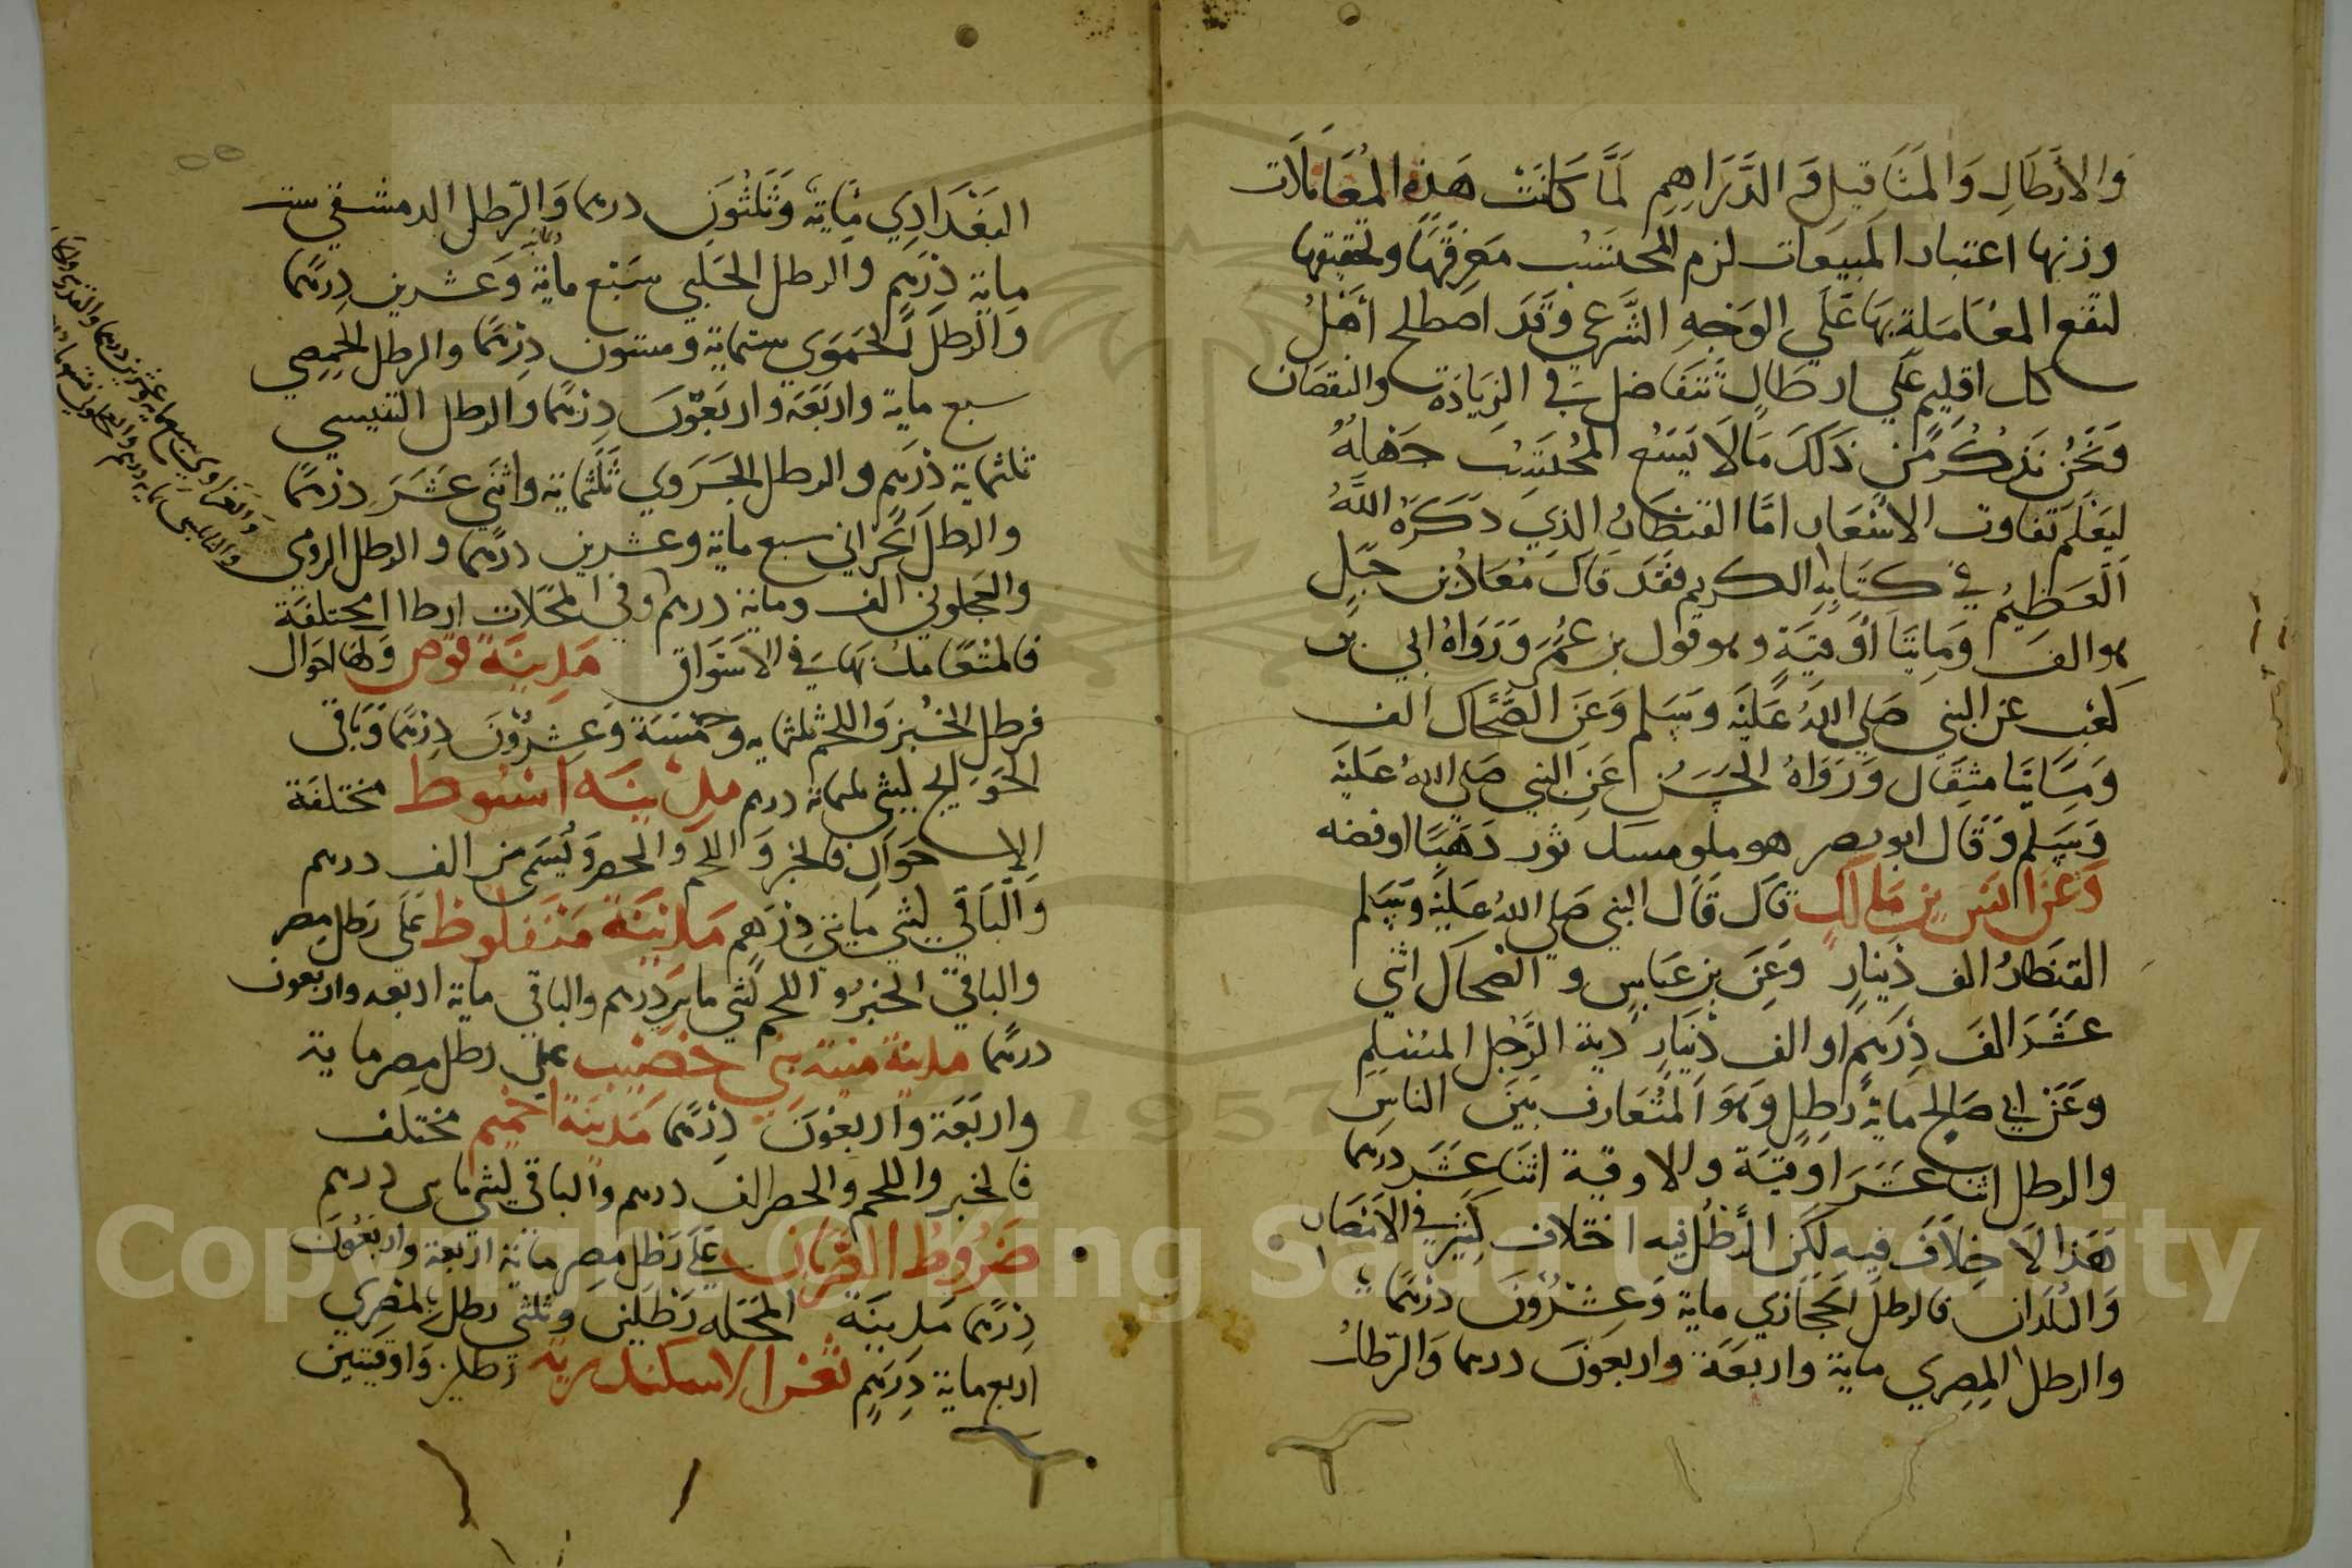 وَالأرطَالِ وَالمَثَاقيلِ وَالدَّرَاهِمِ لمَّا كَانَتْ هَذِه المُعَامَلَات
وزنها اعتبار المَبيعات لزم المحتسب مَعرِفتَهَا وتحقيقها
لتقع المعَاملة بهَا عَلَي الوَجهِ الشَّرعي وَقَد اصطلح أهْلُ
كل اقليم عَلَي ارطالٍ تتفاضل في الزيَادَة والنقصَان
وَنَحْنُ نَذكُر مِن ذَلَكَ مَا لَا يَسَعُ المُحتَسِبَ جَهْلهُ
ليَعْلَم تفاوت الاسْعَار امَّا القنطَارُ الذِي ذَكَرَهُ اللَّهُ
العَظيمُ في كتَابِهِ الكريم فقَد قالَ مُعَاذُ بن جَبَلٍ
هو الف وَمايتَا أوقيَة وهو قول بن عُمَرَ وَرَوَاهُ ابي بن
كعْب عن النبي صَلي اللهُ عَلَيْه وسَلم وَعَن الضَّحَّاك الف
وَمَايتَا مثقَال وَرَوَاهُ الحَسَنُ عَن النبي صَلي اللهُ عَليَه
وَسَلم وَقَال ابو نصر هو ملو مسك ثور ذَهَبًا او فضه
وَعَن انَس بن مَالِكٍ قَال قَال النبي صَلي اللهُ عَليْه وَسَلم
القنطَارُ الف دينَارٍ وَعَن بن عبَاسٍ و الضحَاك اثني
عَشَرَ الفَ دِرهَمٍ او الف دينَارٍ دية الرَّجُل المسْلِمِ
وعَن ابي صَالح ماية رطلٍ وَهو المتُعَارف بَينَ الناسِ
والرطل اثنا عَشَرَ اوقيَة والاوقية اثنَا عَشَر درهَما
هَذا لا خِلاَفَ فيه لَكن الرَّطْلُ فيه اختلاف كَثير في الأمْصَار
وَالبُلدَان فالرطل الحجَازي ماية وَعِشْرُونَ درْهَمًا
والرطل المِصري ماية واربعَة واربعونَ درهما وَالرّطلُ
البَغْدَادِي مَاية وَثَلثُونَ درهما وَالرّطل الدمشقي ست
ماية دِرْهَم والرطل الحلبي سَبْع ماية وَعشرين دِرهَما
وَالرطل الحَمَوي ستماية وستون دِرْهَمًا والرطل الحِمِصي
سبع ماية واربَعَة واربَعُونَ دِرْهَمًا والرطل
ثلثماية دِرْهَم والرطل ثَلَثماية واثني عَشَرَ دِرهمًا
والرطل الحَرّاني سبع ماية وعشرين درهمًا والرطل الرومي
والعَجلوني الف وماية درهم وفي المَحَلات ارطال مختلفة
فالمتعَامل بهَا في الأسْوَاق مَدِينَة قوص وَلهَا احوَال
فرطل الخُبز وَاللحم ثلثماية وَخمْسَة وَعِشرُونَ دِرْهَمًا وَبَاقي
الحَوَايج ليثي ثلثماية درهم مدِينَه اسْيوط مختلفَة
الاحوَال فالخبز وَاللحم والحصر من الف درهم
وَالبَاقي ليثي مَايتي دِرْهَم مَدِينَة مَنفلوط عَلَى رطل مصر
والباقي الخبز و اللحم ليثي مايتي درهم والباقي ماية اربعه واربعون
درهمًا مَدينة منية بني خصيب علي رطل مصر ماية
واربَعَة وَاربعُونَ دِرْهَمًا مَدينَة اخميم مختلف
فالخبز واللحم والحصر الف درهم والباقي ليثي مايتي درهم
عَلَى رَطل مِصر ماية اربعة واربَعُونَ
دِرْهَمًا مَدِينَة المحَلَه رَطلين وثلثي رطل بالمصْري
اربع ماية دِرْهَمٍ ثغر الاسكندرية رطلين وَاوقيتين
وَالغَزاوي سبعمايه وعشرين درهما والقدسي
والنابلسي ثمانمايه درهم والعجلوني
Copyright © King Saud University
1957